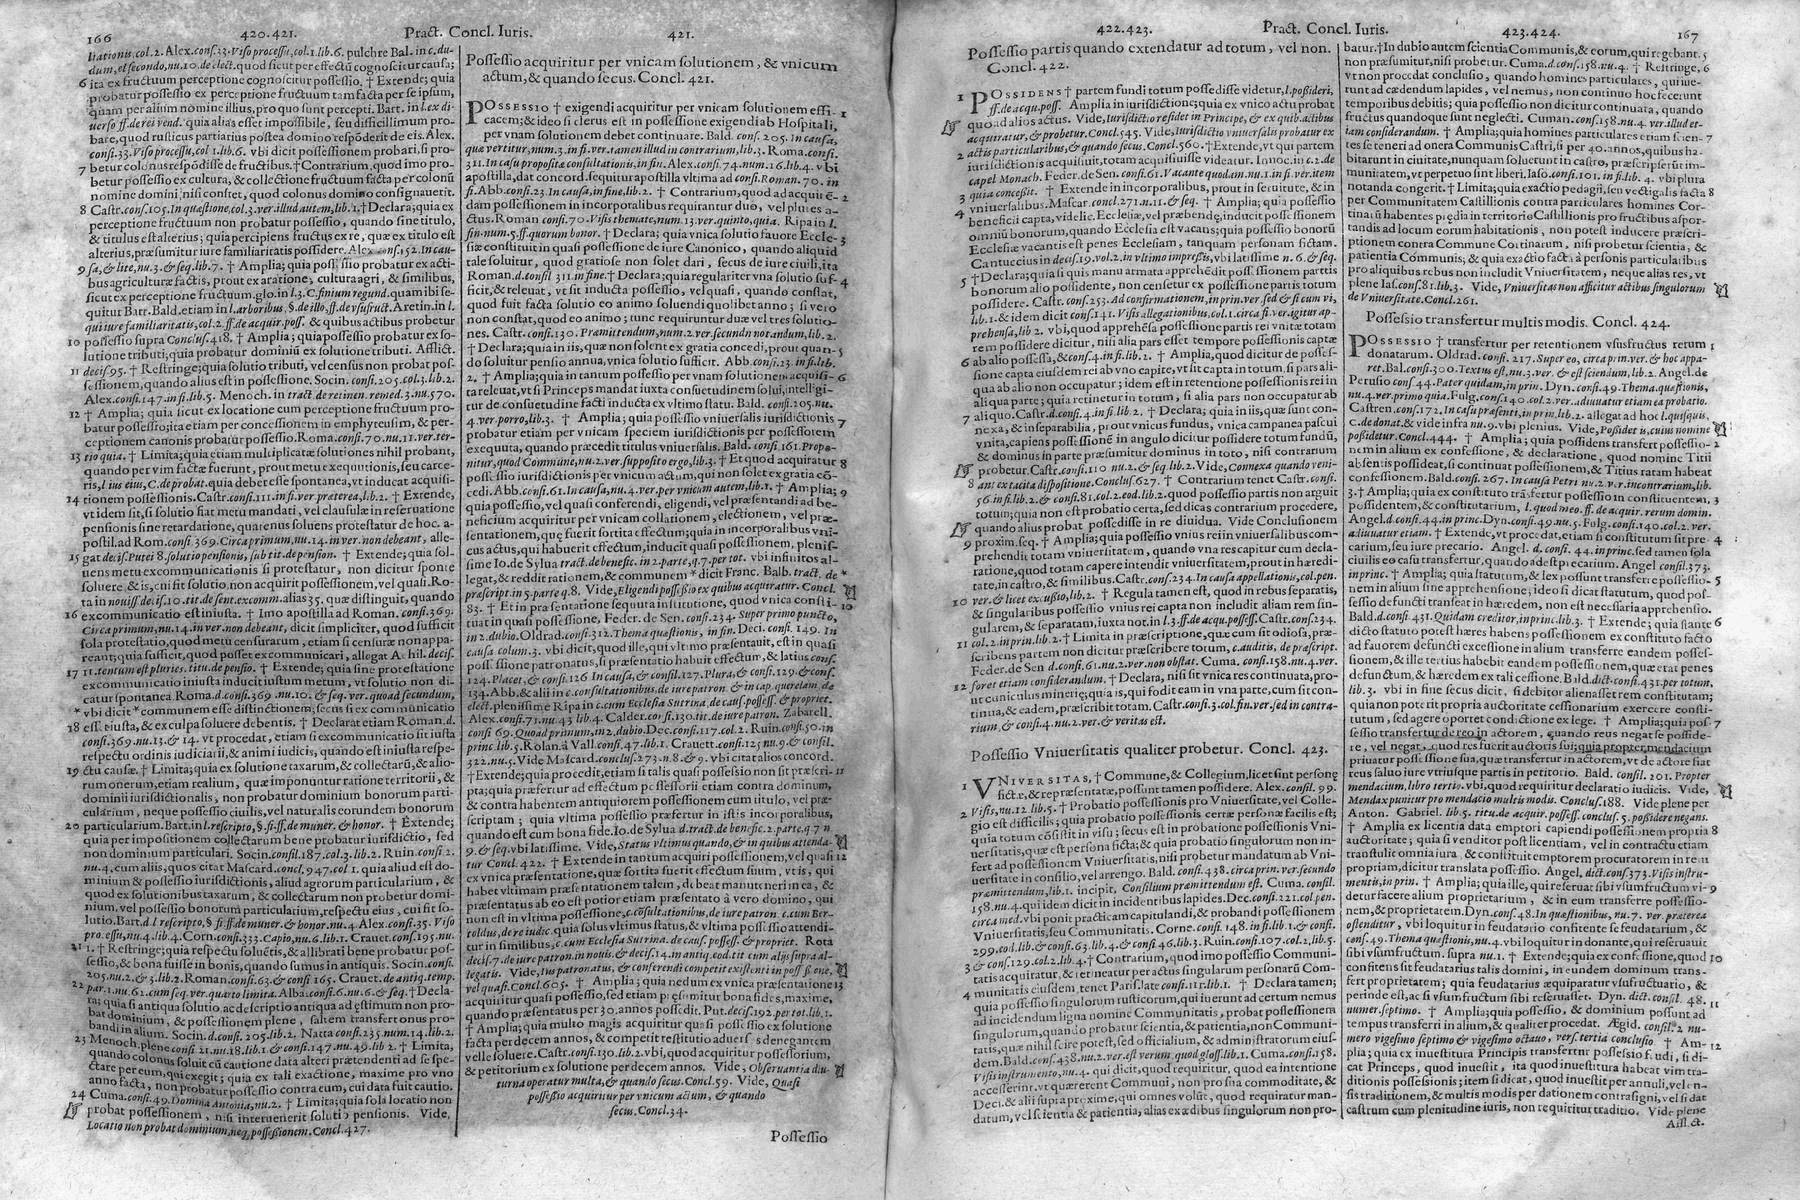 166
420.421.
Pract. Concl. Iuris.
421.
litationis col.2. Alex.consi.23.Viso processu,col.1.lib.6. pulchre Bal.in c.du-
dum,el secondo,nu.10.de elect.quod sicut per effectũ cognoscitur causa;
6 ita ex fructuum perceptione cognoscitur possessio, † Extende; quia
probatur possessio ex perceptione fructuum tam facta per se ipsum,
quam per alium nomine illius, pro quo sunt percepti. Bart. in l.ex di-
uerso ff.de rei vend. quia alias esset impossibile, seu difficillimum pro-
bare, quod rusticus partiarius postea domino respõderit de eis. Alex.
consi.33.Viso processu,col 1.lib.6. vbi dicit possessionem probari, si pro-
7 betur colonus respõdisse de fructibus.†Contrarium, quod imo pro-
betur possessio ex cultura, & collectione fructuum facta per colonũ
nomine domini, nisi constet, quod colonus domino consignauerit.
8 Castr.consi.105.In quæstione,col.3.ver.illud autem,lib.1.†Declara;quia ex
perceptione fructuum non probatur possessio, quando sine titulo,
& titulus est alterius; quia percipiens fructus ex re, quæ ex titulo est
alterius, præsumitur iure familiaritatis possidere. Alex consi.152.In cau-
9 sa,& lite,nu.3.& seq.lib.7. † Amplia; quia possessio probatur ex acti-
bus agriculturæ factis, prout ex aratione, cultura agri, & similibus,
sicut ex perceptione fructuum.glo.in l.3.C.finium regund.quam ibi se-
quitur Bart. Bald. etiam in l.arboribus,§.de illo,ff.de vsufruct. Aretin. in l.
qui iure familiaritatis,col.2.ff.de acquir.poss. & quibus actibus probetur
10 possessio supra Conclus.418. † Amplia; quia possessio probatur ex so-
lutione tributi; quia probatur dominiũ ex solutione tributi. Afflict.
11 decis.95. † Restringe;quia solutio tributi, vel census non probat pos-
sessionem, quando alius est in possessione. Socin. consi.205.col.3.lib.2.
Alex.consi.147.in fi.lib.5. Menoch. in tract.de retinen.remed.3.nu.570.
12 † Amplia; quia sicut ex locatione cum perceptione fructuum pro-
batur possessio, ita etiam per concessionem in emphyteusim, & per-
ceptionem canonis probatur possessio.Roma.consi.70.nu.11.ver.ter-
13 tio quia. † Limita; quia etiam multiplicatæ solutiones nihil probant,
quando per vim factæ fuerunt, prout metu exequutionis, seu carce-
ris, l ius eius,C.de probat. quia debet esse spontanea, vt inducat acquisi-
14 tionem possessionis.Castr.consi.111.in fi.ver.præterea,lib.2. † Extende,
vt idem sit, si solutio fiat metu mandati, vel clausulæ in reseruatione
pensionis sine retardatione, quarenus soluens protestatur de hoc. a-
postil. ad Rom.consi 369.Circa primum,nu.14.in ver.non debeant, alle-
15 gat decis.Putei 8.solutio pensionis, sub tit.de pension. † Extende; quia sol-
uens metu excommunicationis si protestatur, non dicitur sponte
soluere & is, cui sit solutio non acquirit possessionem, vel quasi. Ro-
ta in nouiss decis.10.tit.de sent.excomm. alias 35. quæ distinguit, quando
16 excommunicatio est iniusta. † Imo apostilla ad Roman. consi.369.
Circa primum,nu.14.in ver.non debeant, dicit simpliciter, quod sufficit
sola protestatio, quod metu censurarum, etiam si censuræ non appa-
reant; quia sufficit, quod posset excommunicari, allegat Achil. decis.
17 11.tentum est pluries.titu.de pensio. † Extende; quia sine protestatione
excommunicatio iniusta inducit iustum metum, vt solutio non di-
catur spontanea Roma.d.consi.369.nu.10.& seq.ver.quoad secundum,
* vbi dicit * communem esse distinctionem; secus si excommunicatio
18 esset iusta, & ex culpa soluere debentis. † Declarat etiam Roman.d.
consi.369.nu.13.& 14. vt procedat, etiam si excommunicatio sit iusta
respectu ordinis iudiciarii, & animi iudicis, quando est iniusta respe-
19 ctu causæ. † Limita; quia ex solutione taxarum, & collectarũ, & alio-
rum onerum, etiam realium, quæ imponuntur ratione territorii, &
dominii iurisdictionalis, non probatur dominium bonorum parti-
cularium, neque possessio ciuilis, vel naturalis eorundem bonorum
20 particularium. Bart. in l.rescripto,§.si.ff.de muner.& honor. † Extende;
quia per impositionem collectarum bene probatur iurisdictio, sed
non dominium particulari. Socin.consil.187.col.3.lib.2. Ruin.consi 2.
nu.4.cum aliis, quos citat Mascard.concl.947.col 1. quia aliud est do-
minium & possessio iurisdictionis, aliud agrorum particularium, &
quod ex solutionibus taxarum, & collectarum non probetur domi-
nium, vel possessio bonorum particularium, respectu eius, cui sit so-
lutio.Bart.d.l rescripto,§ si ff.de muner.& honor.nu.4. Alex.consi.35.Viso
processu,nu.4.lib.4. Corn.consi.333.Capio,nu.6.lib.1. Crauet.consi.195.nu.
21 1. † Restringe; quia respectu soluẽtis, & allibrati bene probatur pos-
sessio, & bona fuisse in bonis, quando sumus in antiquis. Socin.consi.
205.nu.2.& 3.lib.2.Roman.consi.63.& consi 165. Crauet.de antiq.temp.
22 par.1.nu.61.cum seq.ver.quarto limita. Alba.consi.6.nu.6.& seq.†Decla-
ra; quia si antiqua solutio, ac descriptio antiqua ad estimum non pro-
bat dominium, & possessionem plene, saltem transfert onus pro-
bandi in alium. Socin.d.consi.205.lib.2. Natta consi.235.num.14.lib.2.
23 Menoch.plene consi 21.nu.18.lib.1.& consi.147.nu.49.lib 2. † Limita,
quando colonus soluit cũ cautione data alteri prætendenti ad se spe-
ctare per eum, qui exegit; quia ex tali exactione, maxime pro vno
anno facta, non probatur possessio contra eum, cui data fuit cautio.
24 Cuma.consi.49.Domina Antonia,nu.2. † Limita; quia sola locatio non
probat possessionem, nisi interuenerit solutio pensionis. Vide,
Locatio non probat dominium,neq,possessionem.Concl.427.
Possessio acquiritur per vnicam solutionem, & vnicum
actum, & quando secus. Concl. 421.
POSSESSIO † exigendi acquiritur per vnicam solutionem effi- 1
cacem; & ideo si clerus est in possessione exigendi ab Hospitali,
per vnam solutionem debet continuare. Bald. consi. 205. In causa,
quæ vertitur,num.3.in fi.ver.tamen illud in contrarium,lib.3. Roma.consi.
311.In casu propositæ consultationis,in fin. Alex.consi.74.num.16.lib.4. vbi
apostilla, dat concord. sequitur apostilla vltima ad consi.Roman.70. in
fi.Abb.consi.23 In causa,in fine,lib.2. † Contrarium, quod ad acquiẽ- 2
dam possessionem in incorporalibus requirantur duo, vel plures a-
ctus. Roman consi.70.Visis themate,num.13.ver.quinto,quia. Ripa in l.
fin.num.5.ff.quorum bonor. † Declara; quia vnica solutio fauore Eccle- 3
siæ constituit in quasi possessione de iure Canonico, quando aliquid
tale soluitur, quod gratiose non solet dari, secus de iure ciuili, ita
Roman.d.consil 311.in fine.† Declara; quia regulariter vna solutio suf- 4
ficit, & releuat, vt sit inducta possessio, vel quasi, quando constat,
quod fuit facta solutio eo animo soluendi quolibet anno; si vero
non constat, quod eo animo; tunc requiruntur duæ vel tres solutio-
nes. Castr.consi.130.Præmittendum,num.2.ver.secundn not.andum,lib.2.
† Declara; quia in iis, quæ non solent ex gratia concedi, prout quan- 5
do soluitur pensio annua, vnica solutio sufficit. Abb.consi.23.in fi.lib.
2. † Amplia; quia in tantum possessio per vnam solutionem acquisi- 6
ta releuat, vt si Princeps mandat iuxta consuetudinem solui, intelligi-
tur de consuetudine facti inducta ex vltimo statu. Bald. consi.205.nu.
4.ver.porro,lib.3. † Amplia; quia possessio vniuersalis iurisdictionis 7
probatur etiam per vnicam speciem iurisdictionis per possessorem
exequuta, quando præcedit titulus vniuersalis. Bald. consi 161.Propo-
nitur,quod Commune,nu.2.ver.supposito ergo,lib.3. † Et quod acquiratur 8
possessio iurisdictionis per vnicum actum, qui non solet ex gratia cõ-
cedi. Abb.consi.61.In causa,nu.4.ver.per vnicum autem,lib.1. † Amplia; 9
quia possessio, vel quasi conferendi, eligendi, vel præsentandi ad be-
neficium acquiritur per vnicam collationem, electionem, vel præ-
sentationem, quæ fuerit sortita effectum; quia in incorporalibus vni-
cus actus, qui habuerit effectum, inducit quasi possessionem, plenis-
sime Io.de Sylua tract.de benefic.in 2.parte,q.7.per tot. vbi infinitos al-
legat, & reddit rationem, & communem * dicit Franc. Balb. tract. de *
præscript.in 5.parte q.8. Vide,Eligendi possessio ex quibus acquiratur. Concl.
83. † Et in præsentatione sequuta institutione, quod vnica consti- 10
tuat in quasi possessione, Feder. de Sen. consi.234. Super primo puncto,
in 2.dubio.Oldrad.consi.312.Thema quæstionis, in fin. Deci.consi. 149. In
causa colum.3. vbi dicit, quod ille, qui vltimo præsentauit, est in quasi
possessione patronatus, si præsentatio habuit effectum, & latius consi.
124.Placet,& consi.126 In causa,& consil.127.Plura,& consi.129.& consi.
134.Abb.& alii in c.consultationibus.de iure patron.& in cap.querelam.de
elect.plenissime Ripa in c.cum Ecclesia Sutrina,de caus.possess.& propriet.
Alex.consi.71.nu.43 lib.4. Calder.consi.130.tit.de iure patron. Zabarell.
consi 69.Quoad primum,in 2.dubio. Dec.consi.117.col.2. Ruin.consi.50.in
princ.lib.5.Rolan.à Vall.consi.47.lib.1. Crauett.consi.125 nu.9.& consil.
322.nu.5.Vide Mascard.conclus.273.n.8.& 9. vbi citat alios concord.
†Extende; quia procedit, etiam si talis quasi possessio non sit præscri- 11
pta; quia præfertur ad effectum possessorii etiam contra dominum,
& contra habentem antiquiorem possessionem cum titulo, vel præ-
scriptam; quia vltima possessio præfertur in istis incorporalibus,
quando est cum bona fide. Io.de Sylua d.tract.de benefic.2.parte,q.7 n
9.& seq.vbi latissime. Vide,Status vltimus quando,& in quibus attenda-
tur Concl. 422. † Extende in tantum acquiri possessionem, vel quasi 12
ex vnica præsentatione, quæ sortita fuerit effectum suum, vt is, qui
habet vltimam præsentationem talem, debeat manuteneri in ea, &
præsentatus ab eo est potior etiam præsentato à vero domino, qui
non est in vltima possessione,c.cõsultationibus,de iure patron.c.cum Ber-
toldus,de re iudic.quia solus vltimus status, & vltima possessio attendi-
tur in similibus,c.cum Ecclesia Sutrina.de caus.possess.& propriet. Rota
decis.7.de iure patron.in nouis,& decis.14.in antiq.cod.tit cum aliis supra al-
legatis. Vide,Ius patronatus, & conferendi competit existenti in possessione,
vel quasi.Concl.605. † Amplia; quia nedum ex vnica præsentatione 13
acquiritur quasi possessio, sed etiam præsumitur bona fides, maxime,
quando præsentatus per 30.annos possedit. Put.decis.192.per tot.lib.1.
† Amplia; quia multo magis acquiritur quasi possessio ex solutione
facta per decem annos, & competit restitutio aduersus denegantem
velle soluere.Castr.consi.130.lib.2.vbi, quod acquiritur possessorium,
& petitorium ex solutione per decem annos. Vide, Obseruantia diu-
turna operatur multa, & quando secus. Concl.59. Vide, Quasi
possessio acquiritur per vnicum actum, & quando
secus.Concl.34.
Possessio
422.423.
Pract. Concl. Iuris.
423.424.
167
Possessio partis quando extendatur ad totum, vel non.
Concl. 422.
1 POSSIDENS † partem fundi totum possedisse videtur, l.possideri,
ff.de acqu.poss. Amplia in iurisdictione; quia ex vnico actu probat
quo ad alios actus. Vide,Iurisdictio residet in Principe, & ex quib.actibus
acquiratur, & probetur.Concl.545. Vide,Iurisdictio vniuersalis probatur ex
2 actis particularibus,& quando secus.Concl.560. †Extende, vt qui partem
iurisdictionis acquisiuit, totam acquisiuisse videatur. Innoc.in c.2.de
capel Monach. Feder.de Sen.consi.61.Vacante quodam.nu.1.in fi.ver.item
3 quia concessit. † Extende in incorporalibus, prout in seruitute, & in
vniuersalibus. Mascar.concl.271.n.11.& seq. † Amplia; quia possessio
4 beneficii capta, videlic. Ecclesiæ, vel præbendę, inducit possessionem
omniũ bonorum, quando Ecclesia est vacans; quia possessio bonorũ
Ecclesiæ vacantis est penes Ecclesiam, tanquam personam fictam.
Cantuccius in decis.19.vol.2.in vltimo impressis,vbi latissime n.6.& seq.
5 †Declara; quia si quis manu armata apprehẽdit possessionem partis
bonorum alio possidente, non censetur ex possessione partis totum
possidere. Castr.consi.253.Ad confirmationem,in prin.ver.sed & si cum vi,
lib.1.& idem dicit consi.141.Visis allegationibus,col.1.circa fi.ver.igitur ap-
prehensa,lib 2. vbi, quod apprehẽsa possessione partis rei vnitæ totam
rem possidere dicitur, nisi alia pars esset tempore possessionis captæ
6 ab alio possessa,&consi.4.in fi.lib.2. † Amplia, quod dicitur de posses-
sione capta eiusdem rei ab vno capite, vt sit capta in totum, si pars ali-
qua ab alio non occupatur; idem est in retentione possessionis rei in
aliqua parte; quia retinetur in totum, si alia pars non occupatur ab
7 aliquo. Castr.d.consi.4.in fi.lib.2. † Declara; quia in iis, quæ sunt con-
nexa, & inseparabilia, prout vnicus fundus, vnica campanea pascui
vnita, capiens possessionẽ in angulo dicitur possidere totum fundũ,
& dominus in parte est dominus in toto, nisi contrarium
probetur.Castr.consi.110 nu.2.& seq lib.2.Vide,Connexa quando veni-
8 ant ex tacita dispositione.Conclus.627. † Contrarium tenet Castr.consi.
56 in fi.lib.2.& consi.81.col.2.cod.lib.2. quod possessio partis non arguit
totum; quia non est probatio certa, sed dicas contrarium procedere,
quando alius probat possedisse in re diuidua. Vide Conclusionem
9 proxim.seq. † Amplia; quia possessio vnius rei in vniuersalibus com-
prehendit totam vniuersitatem, quando vna res capitur cum decla-
ratione, quod totam capere intendit vniuersitatem, prout in heredi-
tate, in castro, & similibus.Castr.consi.234.In causa appellationis,col.pen.
10 ver.& licet excussio,lib.2. † Regula tamen est, quod in rebus separatis,
& singularibus possessio vnius rei capta non includit aliam rem sin-
gularem, & separatam, iuxta not.in l.3.ff.de acqu.possess.Castr.consi.234.
11 col.2.in prin.lib.2. † Limita in præscriptione, quæ cum sit odiosa, præ-
scribens partem non dicitur præscribere totum,c.auditis, de præscript.
Feder.de Sen d.consi.61.nu.2.ver.non obstat. Cuma. consi.158.nu.4.ver.
12 foret etiam considerandum. † Declara, nisi sit vnica res continuata, pro-
ut cuniculus minerię; quia is, qui fodit eam in vna parte, cum sit con-
tinua, & eadem, præscribit totam. Castr.consi.3.col.fin.ver.sed in contra-
rium,& consi.4.nu.2.ver.& veritas est.
Possessio Vniuersitatis qualiter probetur. Concl. 423.
1 VNIVERSITAS, † Commune, & Collegium, licet sint personę
fictæ, & repræsentatæ, possunt tamen possidere. Alex.consil. 99.
Visis,nu.12.lib.5. † Probatio possessionis pro Vniuersitate, vel Colle-
2 gio est difficilis; quia probatio possessionis certæ personæ facilis est;
quia totum cõsistit in visu; secus est in probatione possessionis Vni-
uersitatis, quæ est persona ficta; & quia probatio singulorum non in-
fert ad possessionem Vniuersitatis, nisi probetur mandatum ab Vni-
uersitate in consilio, vel arrengo. Bald.consi.438.circa prin.ver.secundo
præmittendum,lib.1. incipit,Consilium præmittendum est. Cuma. consil.
158.nu.4.qui idem dicit in incidentibus lapides.Dec.consi.221.col pen.
circa med.vbi ponit practicam capitulandi, & probandi possessionem
Vniuersitatis, seu Communitatis. Corne.consi. 148.in fi.lib.1.& consi.
299.col.lib.& consi.63.lib.4.& consi 46.lib.3. Ruin.consi.107.col.2.lib.5.
3 & consi.129.col.2.lib.4. † Contrarium, quod imo possessio Communi-
tatis acquiratur, & retineatur per actus singularum personarũ Com-
4 munitatis eiusdem, tenet Paris late consi.11 r.lib.1. † Declara tamen;
quia possessio singulorum rusticorum, qui iuerunt ad certum nemus
ad incidendum ligna nomine Communitatis, probat possessionem
singulorum, quando probatur scientia, & patientia, non Communi-
tatis, quæ nihil scire potest, sed officialium, & administratorum eius-
dem. Bald.consi.438.nu.2.ver.est verum,quod gloss.lib.1. Cuma.consi.158.
Visis instrumento,nu.4. qui dicit, quod requiritur, quod ea intentione
accesserint, vt quærerent Communi, non pro sua commoditate, &
Deci.& alii supra proxime, qui omnes volũt, quod requiratur man-
datum, vel scientia & patientia, alias ex ædibus singulorum non pro-
batur.†In dubio autem scientia Communis, & eorum, qui regebant. 5
non præsumitur, nisi probetur. Cuma.d.consi.158.nu.4. † Restringe, 6
vt non procedat conclusio, quando homines particulares, qui iue-
runt ad cædendum lapides, vel nemus, non continuo hoc fecerunt
temporibus debitis; quia possessio non dicitur continuata, quando
fructus quandoque sunt neglecti. Cuman.consi.158.nu.4.ver.illud et-
iam considerandum. † Amplia; quia homines particulares etiam scien- 7
tes se teneri ad onera Communis Castri, si per 40.annos, quibus ha-
bitarunt in ciuitate, nunquam soluerunt in castro, præscripserũt im-
munitatem, vt perpetuo sint liberi. Iaso.consi.101. in fi.lib. 4. vbi plura
notanda congerit. † Limita; quia exactio pedagii, seu vectigalis facta 8
per Communitatem Castillionis contra particulares homines Cor-
tinarũ habentes prędia in territorio Castillionis pro fructibus aspor-
tandis ad locum eorum habitationis, non potest inducere præscri-
ptionem contra Commune Cortinarum, nisi probetur scientia, &
patientia Communis; & quia exactio facta à personis particularibus
pro aliquibus rebus non includit Vniuersitatem, neque alias res, vt
plene Ias.consi.81.lib.3. Vide,Vniuersitas non afficitur actibus singulorum
de Vniuersitate.Concl.261.
Possessio transfertur multis modis. Concl. 424.
POSSESSIO † transfertur per retentionem vsusfructus rerum 1
donatarum. Oldrad.consi. 217.Super eo,circa prin.ver.& hoc appa-
ret.Bal.consi.300.Textus est,nu.3.ver.& est sciendum,lib.2. Angel.de
Perusio consi 44.Pater quidam,in prin. Dyn.consi.49.Thema quæstionis,
nu.4.ver.primo quia.Fulg.consi.140.col.2.ver.adiuuatur etiam ea probatio.
Castren.consi.172.In casu præsenti,in prin.lib.2. allegat ad hoc l.quisquis,
C.de donat.& vide infra nu.9.vbi plenius. Vide,Possidet is,cuius nomine
possidetur.Concl.444. † Amplia; quia possidens transfert possessio- 2
nem in alium ex confessione, & declaratione, quod nomine Titii
absentis possideat, si continuat possessionem, & Titius ratam habeat
confessionem.Bald.consi.267.In causa Petri nu.2.ver.in contrarium,lib.
3.† Amplia; quia ex constituto trãsfertur possessio in constituentem, 3
possidentem, & constitutarium, l.quod meo.ff.de acquir.rerum domin.
Angel.d.consi.44.in princ.Dyn.consi.49.nu.5. Fulg.consi.140.col.2.ver.
adiuuatur etiam. † Extende, vt procedat, etiam si constitutum sit pre- 4
carium, seu iure precario. Angel. d. consi. 44.in princ. sed tamen sola
ciuilis eo casu transfertur, quando adest precarium. Angel consi.373.
in princ. † Amplia; quia statutum, & lex possunt transferre possessio- 5
nem in alium sine apprehensione; ideo si dicat statutum, quod pos-
sessio defuncti transeat in hæredem, non est necessaria apprehensio.
Bald.d.consi.431.Quidam creditor,in princ.lib.3. † Extende; quia stante 6
dicto statuto potest hæres habens possessionem ex constituto facto
ad fauorem defuncti excessione in alium transferre eandem posses-
sionem, & ille tertius habebit eandem possessionem, quæ erat penes
defunctum, & hæredem ex tali cessione. Bald.dict.consi.431.per totum,
lib.3. vbi in fine secus dicit, si debitor alienasset rem constitutam;
quia non poterit propria auctoritate cessionarium exercere consti-
tutum, sed ageret oportet condictione ex lege. † Amplia; quia pos- 7
sessio transfertur de reo in actorem, quando reus negat se posside-
re, vel negat, quod res fuerit auctoris sui; quia propter mendacium
priuatur possessione sua, quæ transfertur in actorem, vt de actore fiat
reus saluo iure vtriusque partis in petitorio. Bald. consil. 201. Propter
mendacium,libro tertio.vbi, quod requiritur declaratio iudicis. Vide,
Mendax punitur pro mendacio multis modis. Conclus.188. Vide plene per
Anton. Gabriel. lib.5. titu.de acquir.possess. conclus. 5. possidere negans.
† Amplia ex licentia data emptori capiendi possessionem propria 8
auctoritate; quia si venditor post licentiam, vel in contractu etiam
transtulit omnia iura, & constituit emptorem procuratorem in rem
propriam, dicitur translata possessio. Angel.dict.consi.373.Visis instru-
mentis,in prin. † Amplia; quia ille, qui reseruat sibi vsumfructum vi- 9
detur facere alium proprietarium, & in eum transferre possessio-
nem, & proprietatem.Dyn.consi.48.In quæstionibus, nu.7. ver.præterea
ostenditur, vbi loquitur in feudatario confitente se feudatarium, &
consi.49.Thema quæstionis,nu.4.vbi loquitur in donante, qui reseruauit
sibi vsumfructum. supra nu.1. † Extende; quia ex confessione, quod 10
confitens sit feudatarius talis domini, in eundem dominum trans-
fert proprietatem; quia feudatarius æquiparatur vsufructuario, &
perinde est, ac si vsumfructum sibi reseruasset. Dyn. dict.consil. 48. 11
numer.septimo. † Amplia; quia possessio, & dominium possunt ad
tempus transferri in alium, & qualiter procedat. Ægid. consil.2 nu-
mero vigesimo septimo & vigesimo octauo, vers.tertia conclusio † Am- 12
plia; quia ex inuestitura Principis transfertur possessio feudi, si di-
cat Princeps, quod inuestit, ita quod inuestitura habeat vim tra-
ditionis possessionis; item si dicat, quod inuestit per annuli, vel en-
sis traditionem, & multis modis per dationem contrasigni, vel si dat
castrum cum plenitudine iuris, non requiritur traditio. Vide plene
Affl.ct.